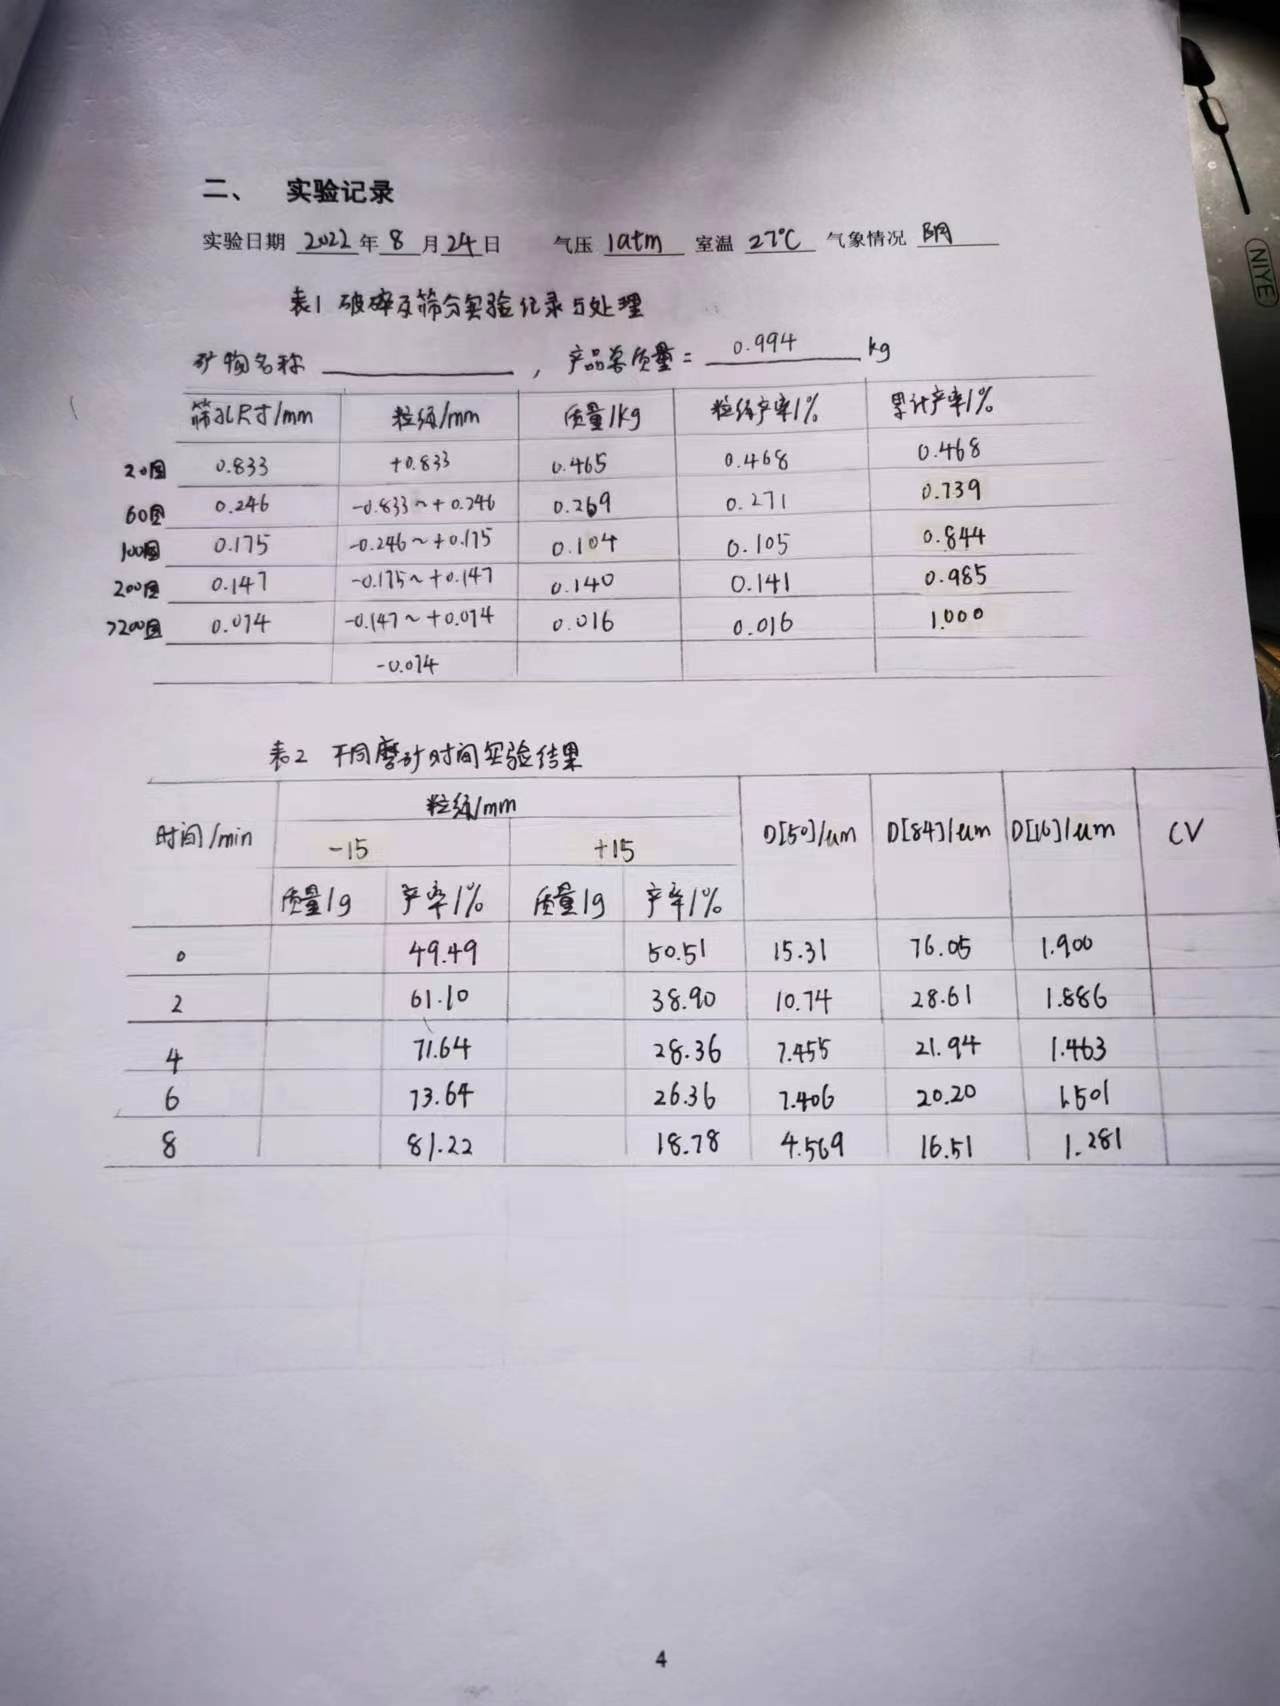 二、 实验记录
实验日期 2022 年 8 月 24 日 气压 1atm 室温 27℃ 气象情况 阴
表1 破碎及筛分实验记录与处理
矿物名称 , 产品总质量 = 0.994 kg
筛孔尺寸/mm 粒级/mm 质量/kg 粒级产率/% 累计产率/%
20目 0.833 +0.833 0.465 0.468 0.468
60目 0.246 -0.833~+0.246 0.269 0.271 0.739
100目 0.175 -0.246~+0.175 0.104 0.105 0.844
200目 0.147 -0.175~+0.147 0.140 0.141 0.985
>200目 0.074 -0.147~+0.074 0.016 0.016 1.000
-0.074
表2 不同磨矿时间实验结果
时间/min 粒级/mm D[50]/um D[84]/um D[16]/um CV
-15 +15
质量/g 产率/% 质量/g 产率/%
0 49.49 50.51 15.31 76.05 1.900
2 61.10 38.90 10.74 28.61 1.886
4 71.64 28.36 7.455 21.94 1.463
6 73.64 26.36 7.406 20.20 1.501
8 81.22 18.78 4.569 16.51 1.281
4
NIYE